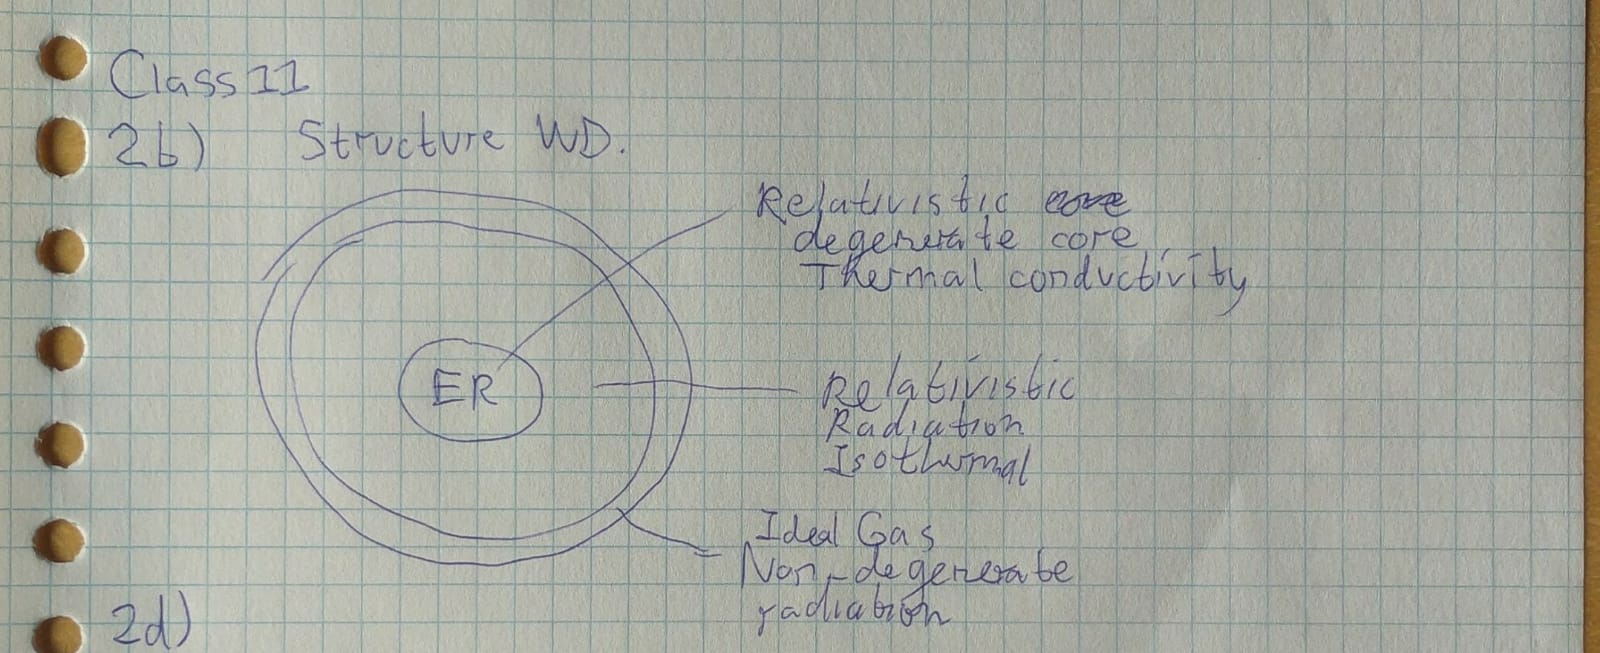 Class 11
2b) Structure WD.
Relativistic
degenerate core
Thermal conductivity
ER
Relativistic
Radiation
Isothermal
Ideal Gas
Non-degenerate
radiation
2d)